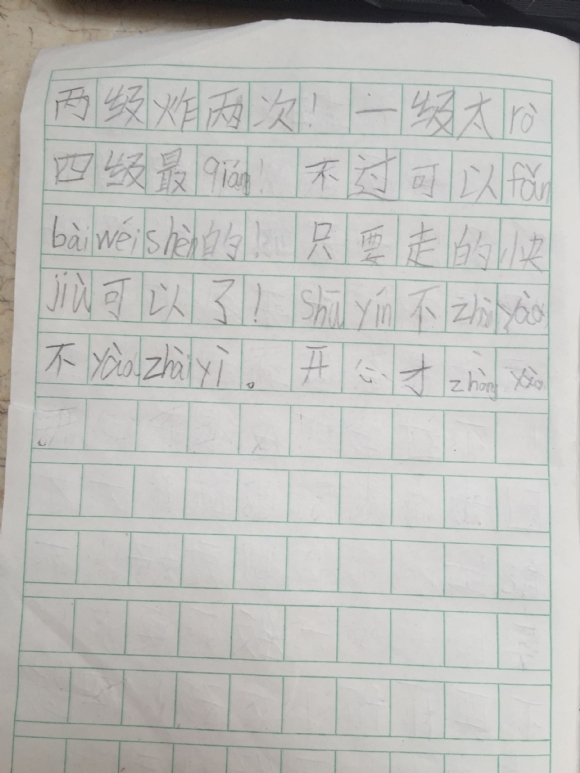 两级炸两次！一级太rò
四级最qián！不过可以fǎn
bàiwéishèn的！只要走的快
jiù可以了！shūyín不zhòyào
不yàozhàiyì。开心才zhòngyào
。